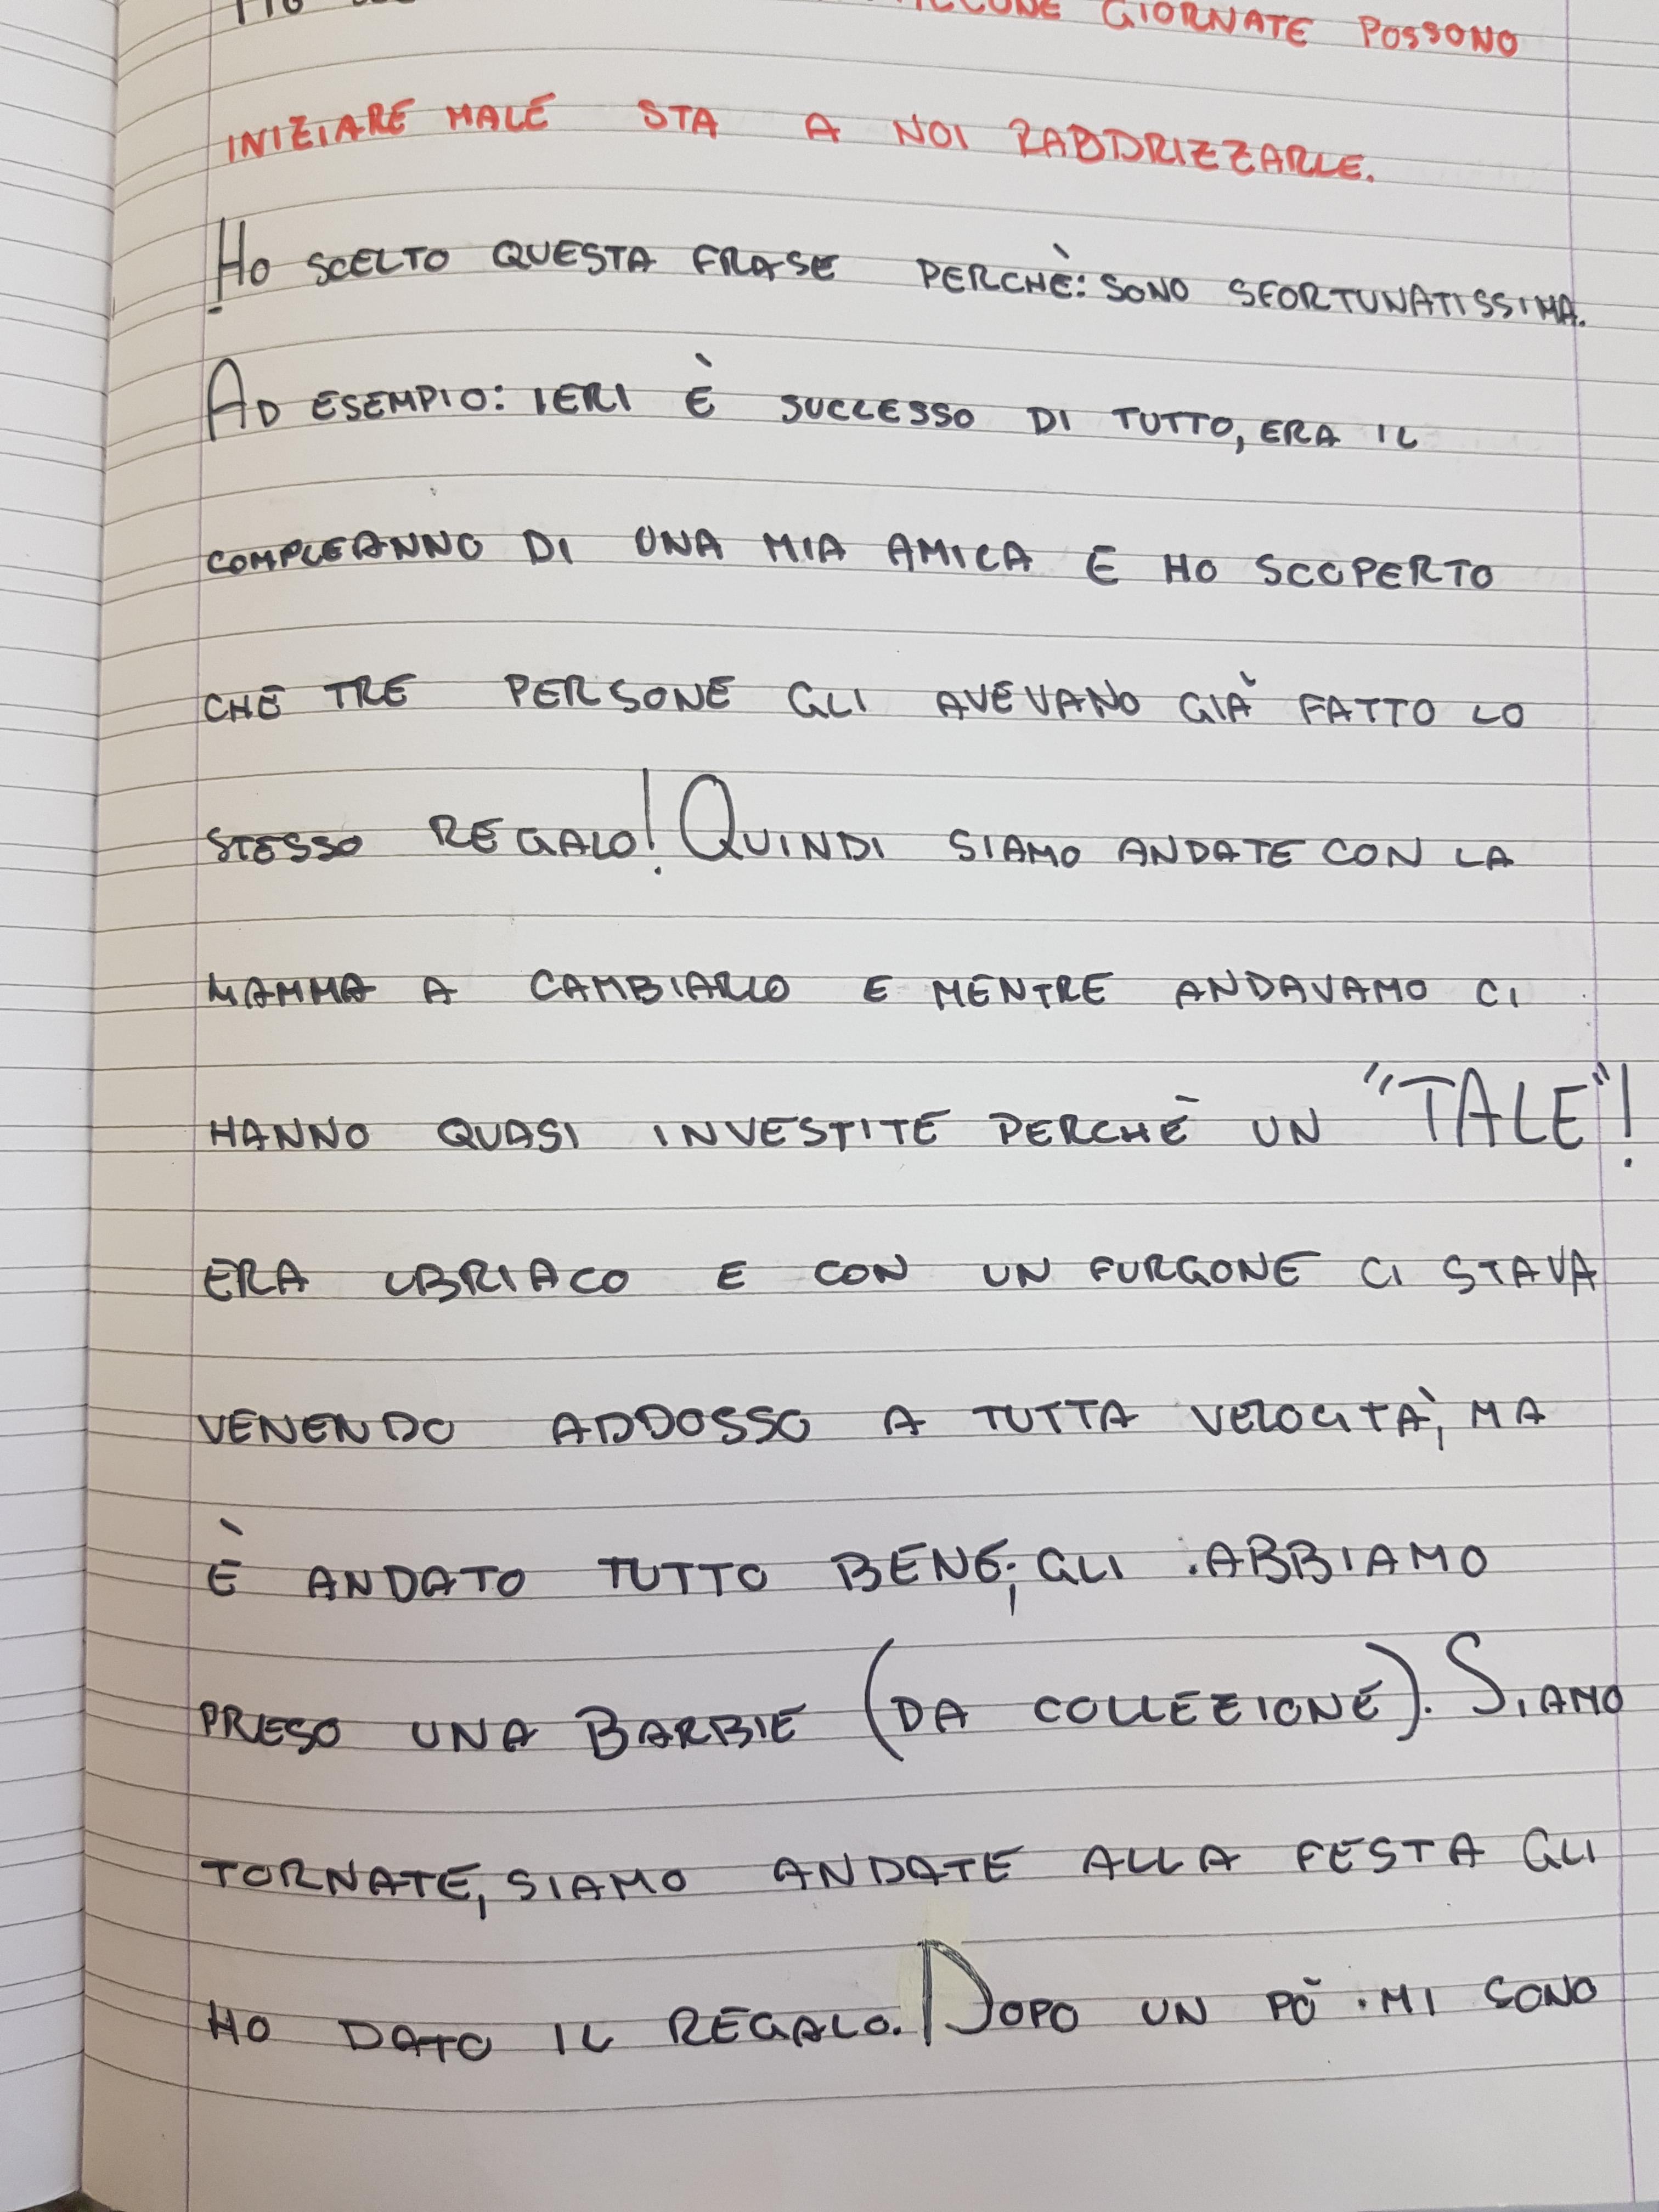 GIORNATE POSSONO
INIZIARE MALE STA A NOI RADDRIZZARLE.
HO SCELTO QUESTA FRASE PERCHÈ: SONO SFORTUNATISSIMA.
AD ESEMPIO: IERI È SUCCESSO DI TUTTO, ERA IL
COMPLEANNO DI UNA MIA AMICA E HO SCOPERTO
CHE TRE PERSONE GLI AVEVANO GIÀ FATTO LO
STESSO REGALO! QUINDI SIAMO ANDATE CON LA
MAMMA A CAMBIARLO E MENTRE ANDAVAMO CI
HANNO QUASI INVESTITE PERCHÈ UN "TALE"!
ERA UBRIACO E CON UN FURGONE CI STAVA
VENENDO ADDOSSO A TUTTA VELOCITÀ, MA
È ANDATO TUTTO BENE; GLI ABBIAMO
PRESO UNA BARBIE (DA COLLEZIONE). SIAMO
TORNATE, SIAMO ANDATE ALLA FESTA GLI
HO DATO IL REGALO. DOPO UN PÒ MI SONO